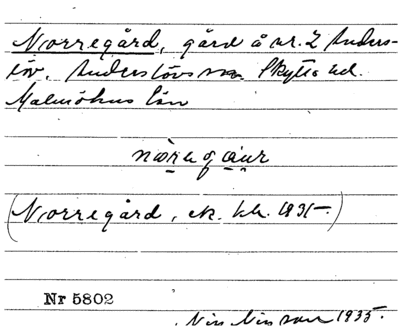 Norregård, gård å nr. 2 Anders-
löv. Anderslövs sn. Skytts hd.
Malmöhus län
(Norregård, ek. kb. 1931.)
Nr 5802
Nils Nilsson 1935.